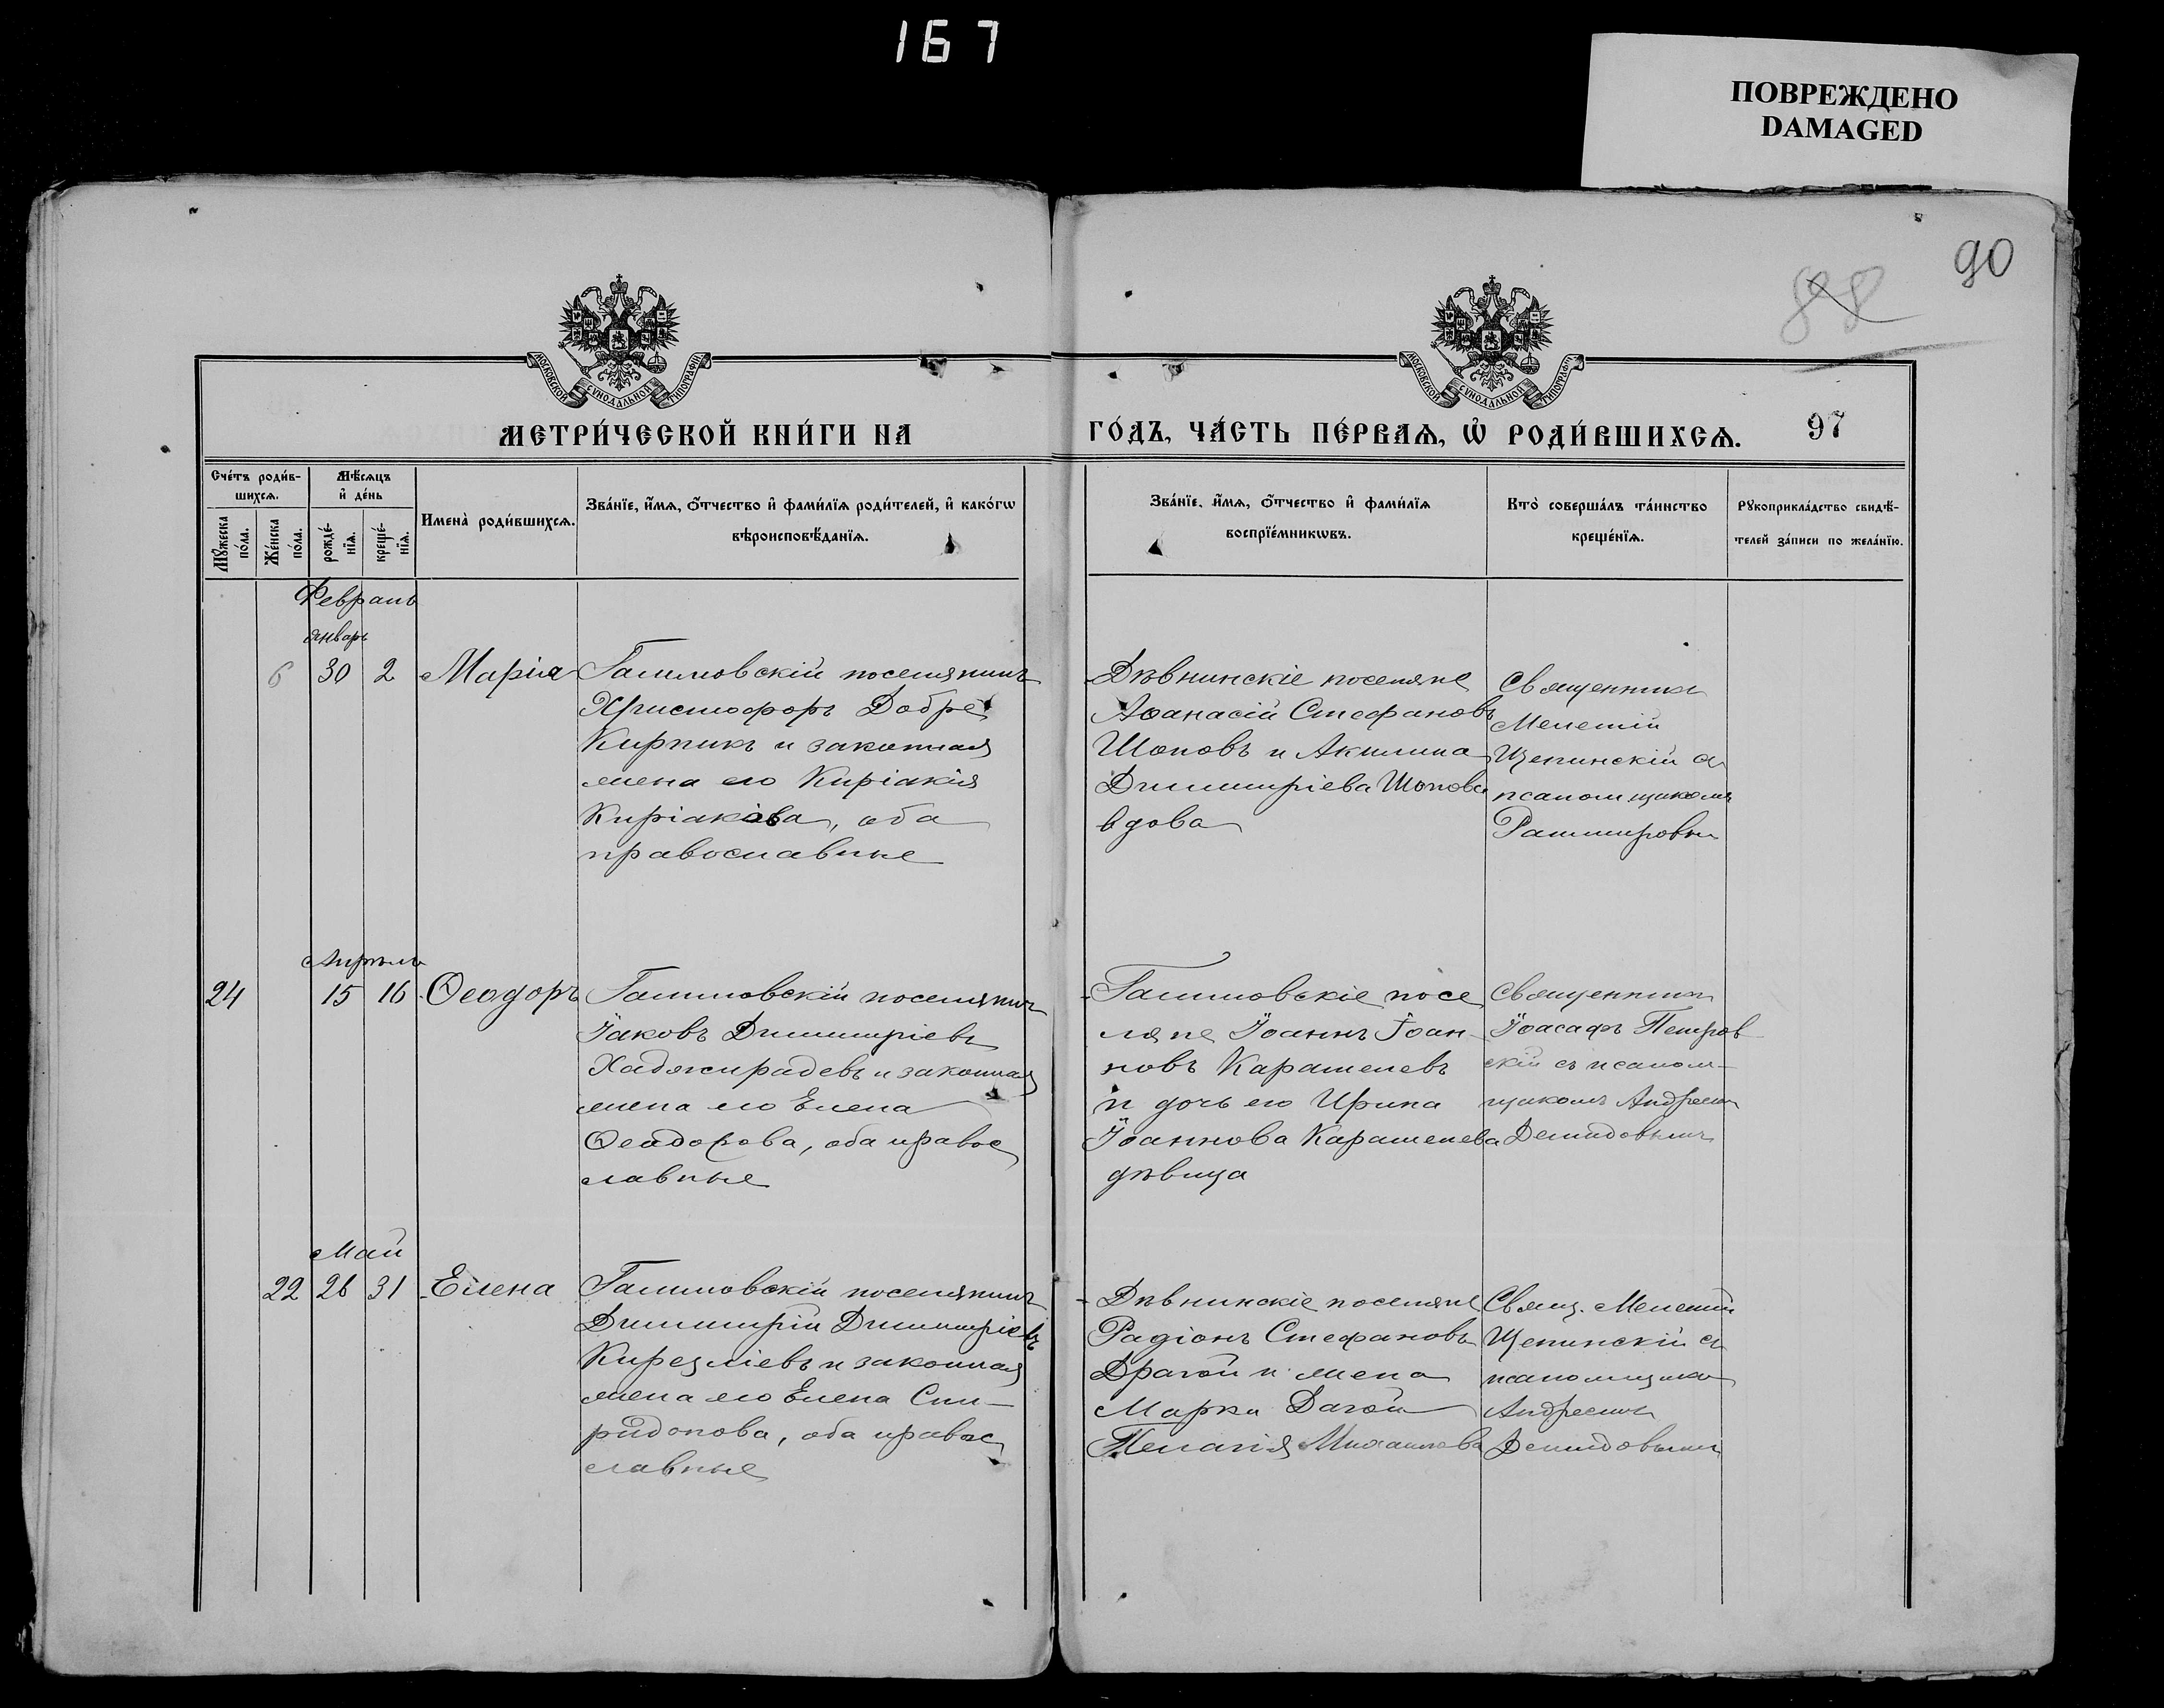 167
ПОВРЕЖДЕНО
DAMAGED
90
88
МОСКОВСКОЙ СѴНОДАЛЬНОЙ ТИПОГРАФІИ
МОСКОВСКОЙ СѴНОДАЛЬНОЙ ТИПОГРАФІИ
МЕТРИ́ЧЕСКОЙ КНИ́ГИ НА
ГО́ДЪ, ЧА́СТЬ ПЕ́РВАѦ, Ѡ҆ РОДИ́ВШИХСѦ.
97
Сче́тъ роди́в-
шихсѧ.
Мѣ́сѧцъ
и҆ де́нь
Мꙋ́жеска по́ла.
Же́нска по́ла.
рожде́-нїѧ.
креще́-нїѧ.
Имена̀ роди́вшихсѧ.
Зва́нїе, и҆́мѧ, ѻ҆́тчество и҆ фами́лїѧ роди́телей, и҆ како́гѡ
вѣроисповѣ́данїѧ.
Зва́нїе, и҆́мѧ, ѻ҆́тчество и҆ фами́лїѧ
воспрїе́мникѡвъ.
Кто̀ соверша́лъ та́инство
креще́нїѧ.
Рꙋкоприкла́дство свидѣ́-
телей за́писи по жела́нїю.
Февраль
Январь
6 30 2 Марія
Галиловскій поселянинъ
Христофоръ Добре
Кирпикъ и законная
жена его Киріакія
Киріакова, оба
православные
Дѣвнинскіе поселяне
Аѳанасій Стефановъ
Шоповъ и Акилина
Димитріева Шопова
вдова
Священникъ
Мелетій
Щепинскій съ
псаломщикомъ
Апрѣль
24 15 16 Ѳеодоръ
поселянинъ
Іаковъ Димитріевъ
Хаджирадевъ и законная
жена его Елена
Ѳеодорова, оба правос
лавные
посе
ляне Іоаннъ Іоан-
новъ Карашелевъ
и дочь его Ирина
Іоаннова Карашелева
дѣвица
Священникъ
Іоасафъ Петров
скій съ псалом-
щикомъ Андреемъ
Демидовымъ
Май
22 28 31 Елена
поселянинъ
Димитрій Димитріевъ
и законная
жена его Елена Спи-
ридонова, оба правос
лавные
Дѣвнинскіе поселяне
Радіонъ Стефановъ
Драгой и жена
Марка Дагой
Пелагія Михаилова
Свящ. Мелетій
Щепинскій съ
псаломщико
Андреемъ
Демидовымъ